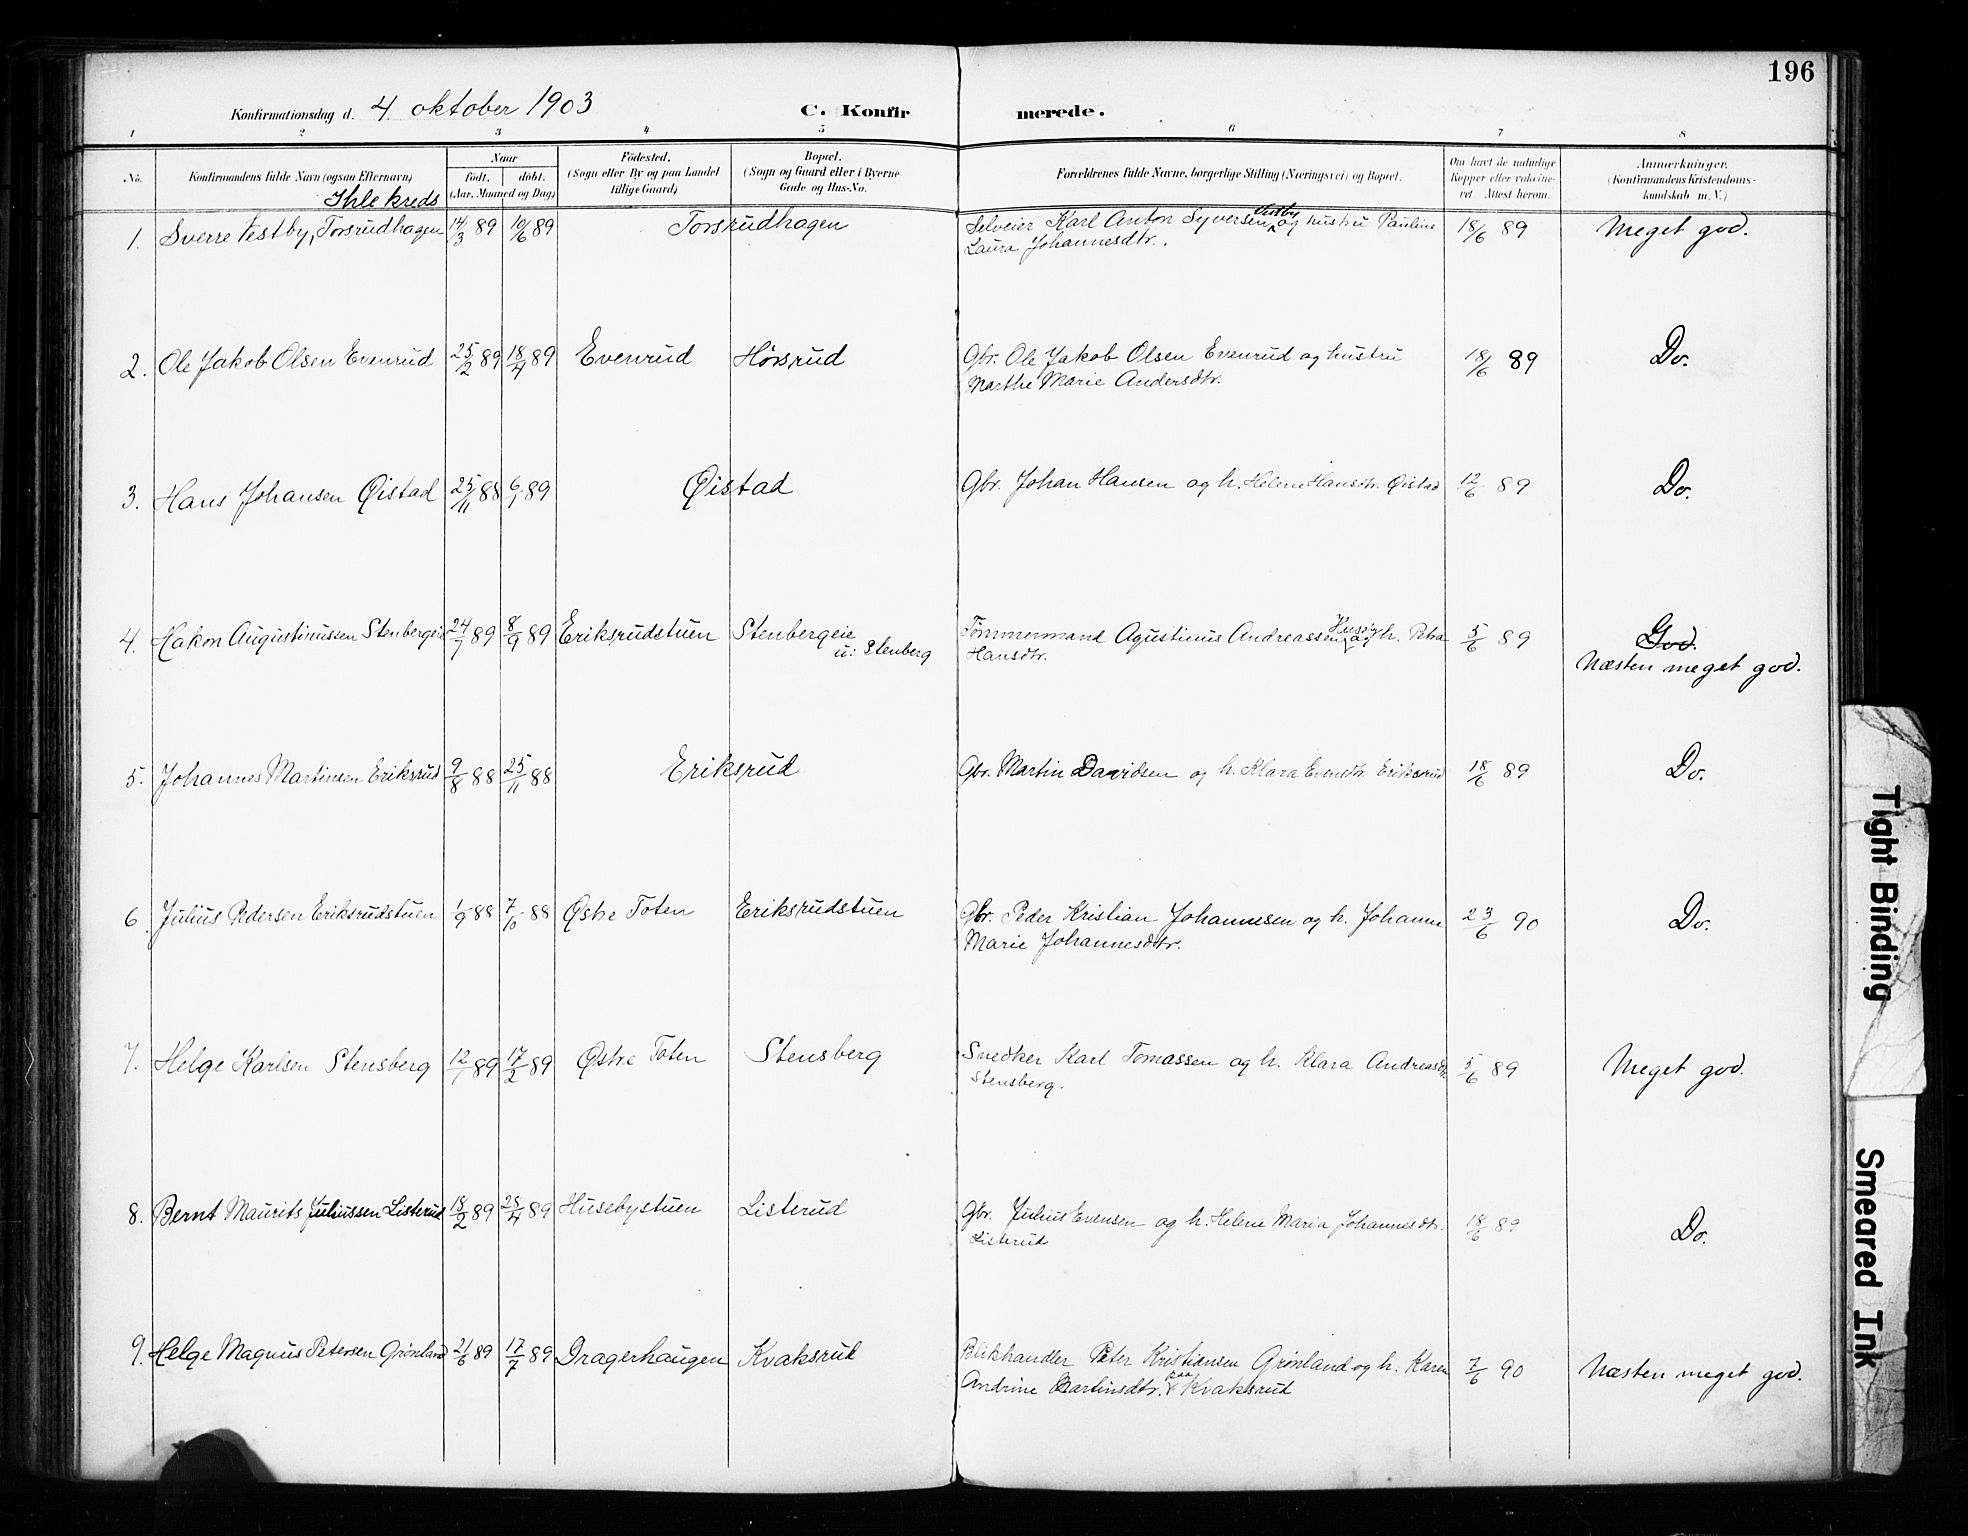 196
Konfirmationsdag d. 4. oktober 1903
C. Konfirmerede.
1 2 3 4 5 6 7 8
No. Konfirmandens fulde Navn (ogsaa Efternavn) Naar födt. döbt. (Aar, Maaned og Dag) Födested. (Sogn eller By og paa Landet tillige Gaard) Bopæl. (Sogn og Gaard eller i Byerne Gade og Hus-No. Forældrenes fulde Navne, borgerlige Stilling (Næringsvei) og Bopæl. Om havt de naturlige Kopper eller vakcineret. Attest herom. Anmærkninger. (Konfirmandens Kristendomskundskab m. V.)
Ihle kreds
1. Sverre Vestby, Torsrudhagen 14/3 89 10/6 89 Torsrudhagen Selveier Karl Anton Syversen Vestby og hustru Pauline 18/6 89 Meget god.
Laura Johannesdtr.
2. Ole Jakob Olsen Evenrud 25/2 89 18/4 89 Evenrud Hørsrud Gbr. Ole Jakob Olsen Evenrud og hustru 18/6 89 Do.
Marthe Marie Andersdtr.
3. Hans Johansen Øistad 25/11 88 6/1 89 Øistad Gbr. Johan Hansen og h. Helene Hansdtr. Øistad 12/6 89 Do.
4. Hakon Augustinussen Stenbergeie 24/7 89 8/9 89 Eriksrudstuen Stenbergeie Tømmermand Agustinus Andreassen og h. Petra 5/6 89 God.
u: Stenberg Hansdtr. Næsten meget god.
5. Johannes Martinsen Eriksrud 9/8 88 25/11 88 Eriksrud Gbr. Martin Davidsen og h. Klara Evensdtr. Eriksrud 18/6 89 Do.
6. Julius Pedersen Eriksrudstuen 1/9 88 7/10 88 Østre Toten Eriksrudstuen Gbr. Peder Kristian Johannesen og h. Johanne 23/6 90 Do.
Marie Johannesdtr.
7. Helge Karlsen Stensberg 12/1 89 17/2 89 Østre Toten Stensberg Snedker Karl Tomassen og h. Klara Andreasdtr. 5/6 89 Meget god.
Stensberg.
8. Bernt Maurits Juliussen Listerud 18/2 89 25/4 89 Husebystuen Listerud Gbr. Julius Evensen og h. Helene Maria Johannesdtr. 18/6 89 Do.
Listerud
9. Helge Magnus Petersen Grønland 21/6 89 17/7 89 Dragerhaugen Kvaksrud Blikhandler Peter Kristiansen Grønland og h. Karen 7/6 90 Næsten meget god.
Andrine Martinsdtr. paa Kvaksrud
Tight Binding
Smeared Ink